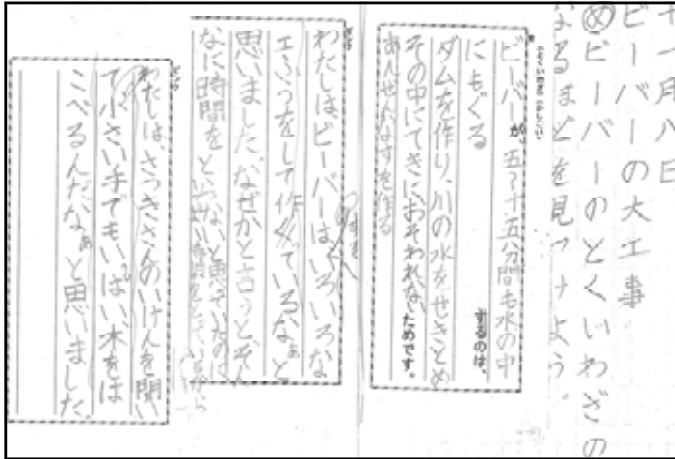 十一月八日
ビーバーの大工事
めビーバーのとくいわざの
なるほどを見つけよう。
ビーバーが、五~十五分間も水の中
にもぐる
するのは、
ダムを作り、川の水をせきとめ
その中にてきにおそわれない
ためです。
あんぜんなすを作る
わたしはビーバーはいろいろな
エふうをして作っているなぁと
思いました。なぜかと言うと、そん
なに時間を
わたしは、さつきさんのいけんを聞い
て小さい手でもいっぱい、木をは
こべるんだなぁと思いました。